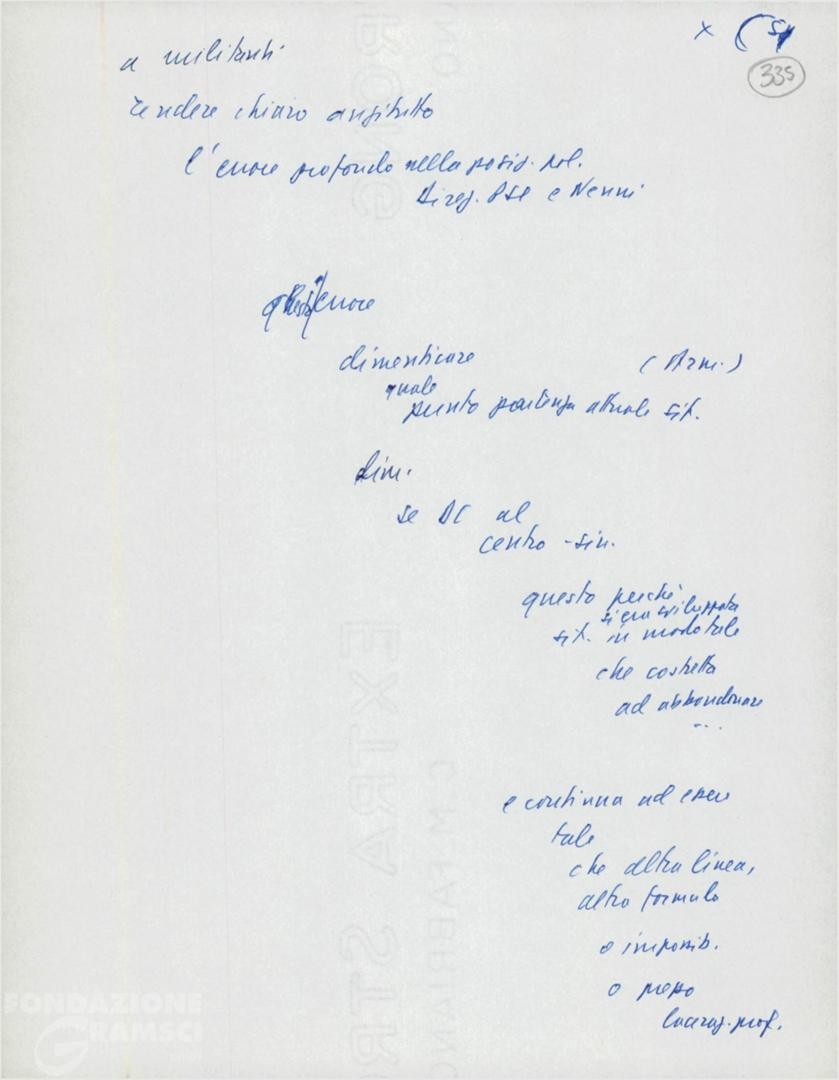 x (5)
335
a militanti
rendere chiaro anzitutto
l'errore profondo nella posiz. pol.
Direz. PSI e Nenni
errore
dimenticare (Arm.)
quale
punto partenza attuale sit.
dim.
se DC al
centro-sin.
questo perché
si era sviluppata
sit. in modo tale
che costretta
ad abbandonare
...
e continua ad essere
tale
che altra linea,
altra formula
o imposib.
o prezzo
laceraz. prof.
FONDAZIONE
GRAMSCI
BOND
EXTRA STR
C.M. FABRIANO